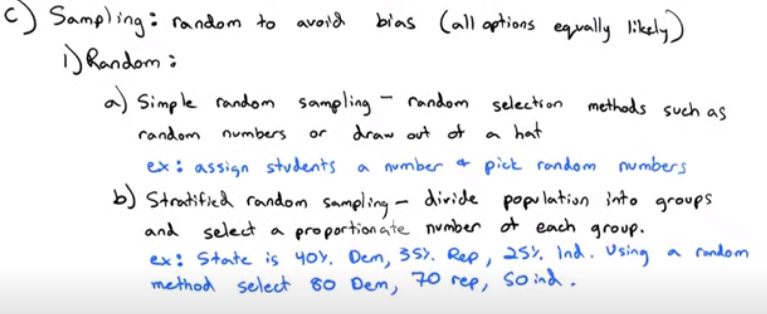 c) Sampling: random to avoid bias (all options equally likely)
i) Random:
a) Simple random sampling - random selection methods such as
random numbers or draw out of a hat
ex: assign students a number & pick random numbers
b) Stratified random sampling - divide population into groups
and select a proportionate number of each group.
ex: State is 40%. Dem, 35%. Rep, 25%. Ind. Using a random
method select 80 Dem, 70 rep, 50 ind.